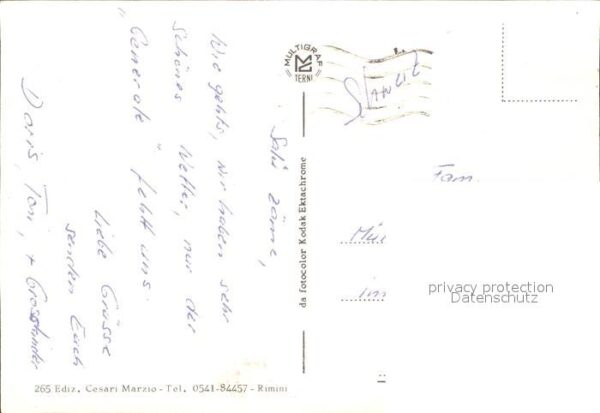 Salü zäme,
Wie gehts, wir haben sehr
schönes Wetter, nur der
"Generale" fehlt uns.
Liebe Grüsse
senden Euch
Doris, Toni, +
MULTIGRAF
TERNI
da fotocolor Kodak Ektachrome
Fam.
privacy protection
Datenschutz
265 Ediz. Cesari Marzio - Tel. 0541-84457 - Rimini